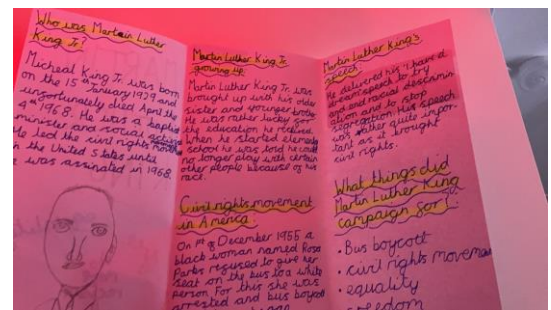 Who was Martain Luther
King Jr?
Micheal King Jr. was born
on the 15th January 1929 and
unfortunately died April the
4th 1968. He was a baptis
minister and social activis
He led the civil rights movem
the United States until
e was assinated in 1968.
Martin Luther King Jr.
growing up:
Martin Luther King Jr. was
brought up with his older
sister and younger brother
He was rather lucky for
the education he recived.
When he started elemen
school he was told he could
no longer play with certain
other people because of his
race.
Civil rights movement
in America:
On 1st of December 1955 a
black woman named Rosa
Parks refused to give her
seat on the bus to a white
person for this she was
arrested and bus boycott
Martin Luther King's
speech:
He delivered his 'i have a
dream' speech to try
and end racial descrimin
ation and to stop
segregation. His speech
was rather quite impor-
tant as it brought
civil rights.
What things did
Martin Luther King
campaign for?
• Bus boycott
• civil rights movemen
• equality
• freedom